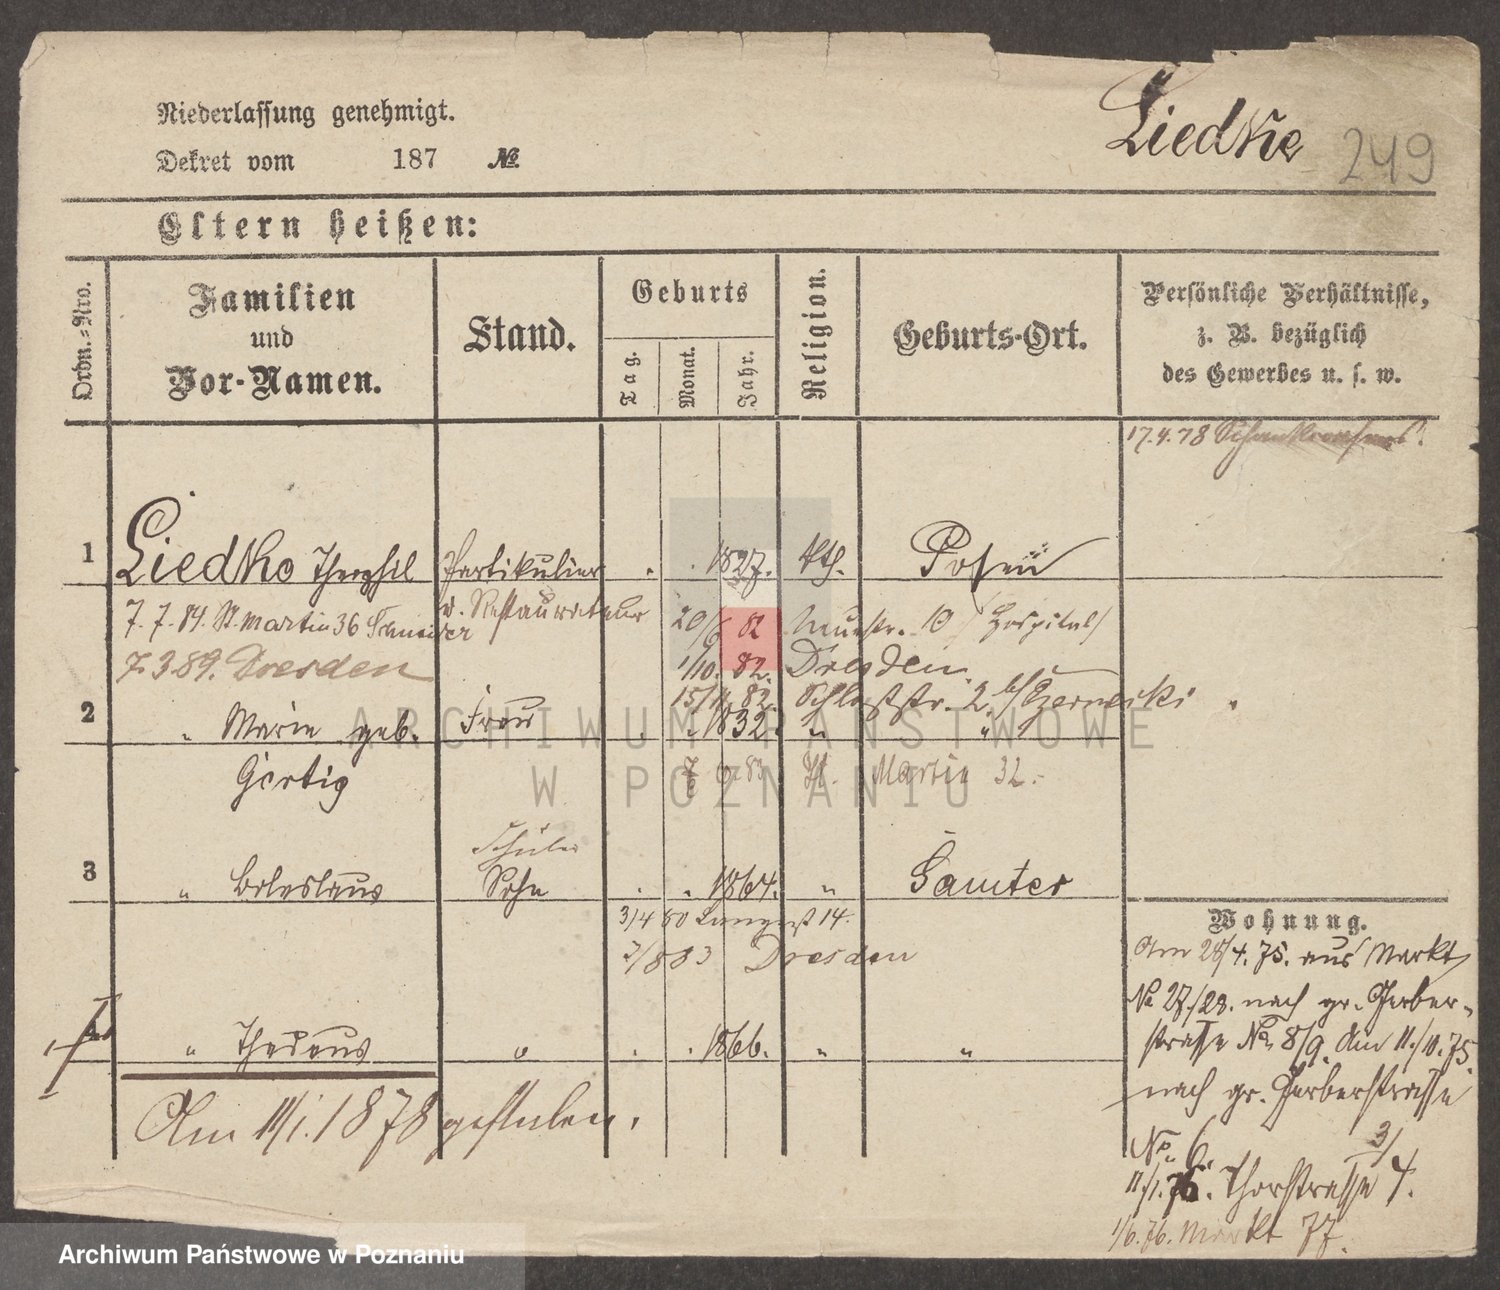 Niederlassung genehmigt.
Dekret vom 187 №
Liedke 249
Eltern heißen:
Ordn.-Nro.
Familien
und
Vor-Namen.
Stand.
Geburts
Tag.
Monat.
Jahr.
Religion.
Geburts-Ort.
Persönliche Verhältnisse,
z. B. bezüglich
des Gewerbes u. s. w.
17.4.78
1 Liedke Theophil Partikulier . . 1827. kth. Posen
7.7.84. St. Martin 36 u. Restaurateur 20/6 82 Neuestr. 10 / Hospital /
7.3.89. Dresden 1/10. 82. Dresden.
15/11. 82. Schloßstr. 2. b/ Czerneiski
2 " Marie geb. Frau . . 1832. " "
Gertig 83 St. Martin 32.
Schüler
3 " Boleslaus Sohn . . 1864. " Samter
3/4 80 Langest 14.
2/8 83 Dresden
4 " Thadeus " . . 1866. " "
Am 11/1. 1878 gestorben.
Wohnung.
Am 28/4. 75. aus Markt
No 27/28. nach gr. Gerber-
strasse No 8/9. Am 11./10. 75.
nach gr. Gerberstrasse
No. 6. 3/
11./1. 76. Thorstrasse 4.
1/6. 76. Markt 77.
ARCHIWUM PAŃSTWOWE
W POZNANIU
Archiwum Państwowe w Poznaniu